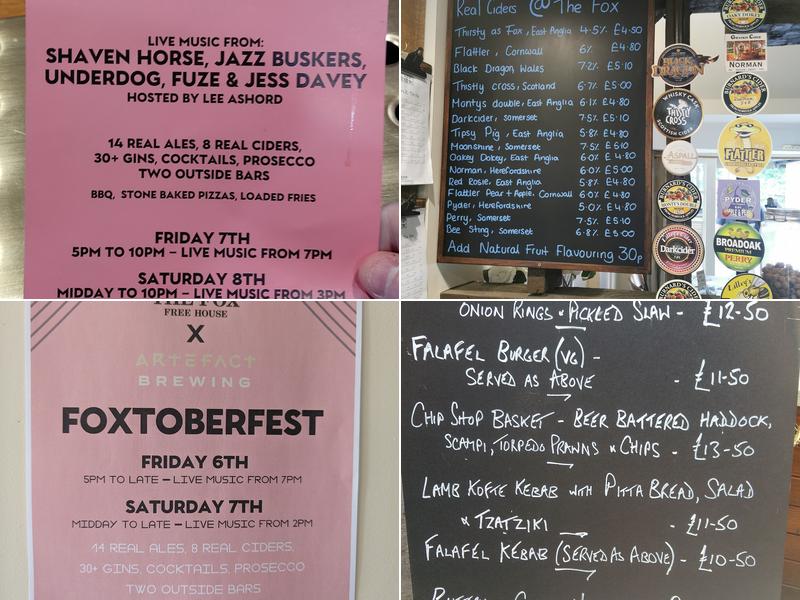 LIVE MUSIC FROM:
SHAVEN HORSE, JAZZ BUSKERS,
UNDERDOG, FUZE & JESS DAVEY
HOSTED BY LEE ASHORD
14 REAL ALES, 8 REAL CIDERS,
30+ GINS, COCKTAILS, PROSECCO
TWO OUTSIDE BARS
BBQ, STONE BAKED PIZZAS, LOADED FRIES
FRIDAY 7TH
5PM TO 10PM – LIVE MUSIC FROM 7PM
SATURDAY 8TH
MIDDAY TO 10PM – LIVE MUSIC FROM 3PM
Real Ciders @ The Fox
Thirsty as Fox, East Anglia 4.5% £4.50
Flattler, Cornwall 6% £4.80
Black Dragon, Wales 7.2% £5.10
Thistly cross, Scotland 6.7% £5.00
Montys double, East Anglia 6.1% £4.80
Darkcider, Somerset 7.5% £5.10
Tipsy Pig, East Anglia 5.8% £4.80
Moonshine, Somerset 7.5% £5.10
Oakey Dokey, East Anglia 6.0% £4.80
Norman, Herefordshire 6.0% £5.00
Red Rosie, East Anglia 5.8% £4.80
Flattler Pear + Apple, Cornwall 6% £4.80
Pyder, Herefordshire 5.0% £4.80
Perry, Somerset 7.5% £5.10
Bee Sting, Somerset 6.8% £5.00
Add Natural Fruit Flavouring 30p
OAKY DOKEY
BLACK DRAGON
NORMAN
WHISKY CASK
THISTLY CROSS
SCOTTISH CIDER
BURNARD'S CIDER
ASPALL
FLATTLER
BURNARD'S CIDER
MONTY'S DOUBLE
PYDER
APPLE & PEAR
Darkcider
BROADOAK
PREMIUM
PERRY
BURNARD'S CIDER
Lilley's
THE FOX
FREE HOUSE
X
ARTEFACT
BREWING
FOXTOBERFEST
FRIDAY 6TH
5PM TO LATE – LIVE MUSIC FROM 7PM
SATURDAY 7TH
MIDDAY TO LATE – LIVE MUSIC FROM 2PM
14 REAL ALES, 8 REAL CIDERS,
30+ GINS, COCKTAILS, PROSECCO
TWO OUTSIDE BARS
ONION RINGS + PICKLED SLAW - £12-50
FALAFEL BURGER (VG) -
SERVED AS ABOVE - £11-50
CHIP SHOP BASKET - BEER BATTERED HADDOCK,
SCAMPI, TORPEDO PRAWNS + CHIPS - £13-50
LAMB KOFTE KEBAB WITH PITTA BREAD, SALAD
+ TZATZIKI - £11-50
FALAFEL KEBAB (SERVED AS ABOVE) - £10-50